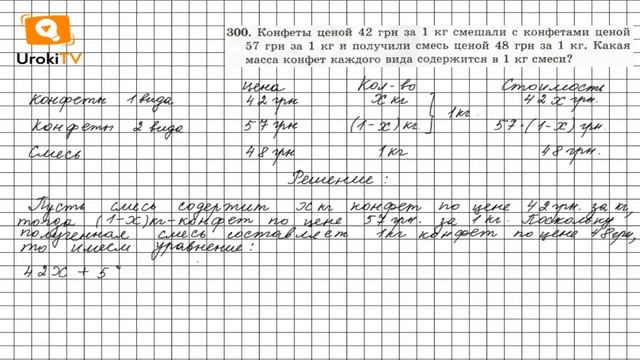 UrokiTV
300. Конфеты ценой 42 грн за 1 кг смешали с конфетами ценой
57 грн за 1 кг и получили смесь ценой 48 грн за 1 кг. Какая
масса конфет каждого вида содержится в 1 кг смеси?
цена Кол-во Стоимость
Конфеты 1 вида 42 грн x кг 42x грн.
1кг.
Конфеты 2 вида 57 грн (1-x) кг 57·(1-x) грн
Смесь 48 грн 1 кг 48 грн.
Решение:
Пусть смесь содержит x кг конфет по цене 42 грн. за кг,
тогда (1-x)кг-конфет по цене 57 грн. за 1 кг. Поскольку
полученная смесь составляет 1кг конфет по цене 48грн,
то имеем уравнение:
42x + 5